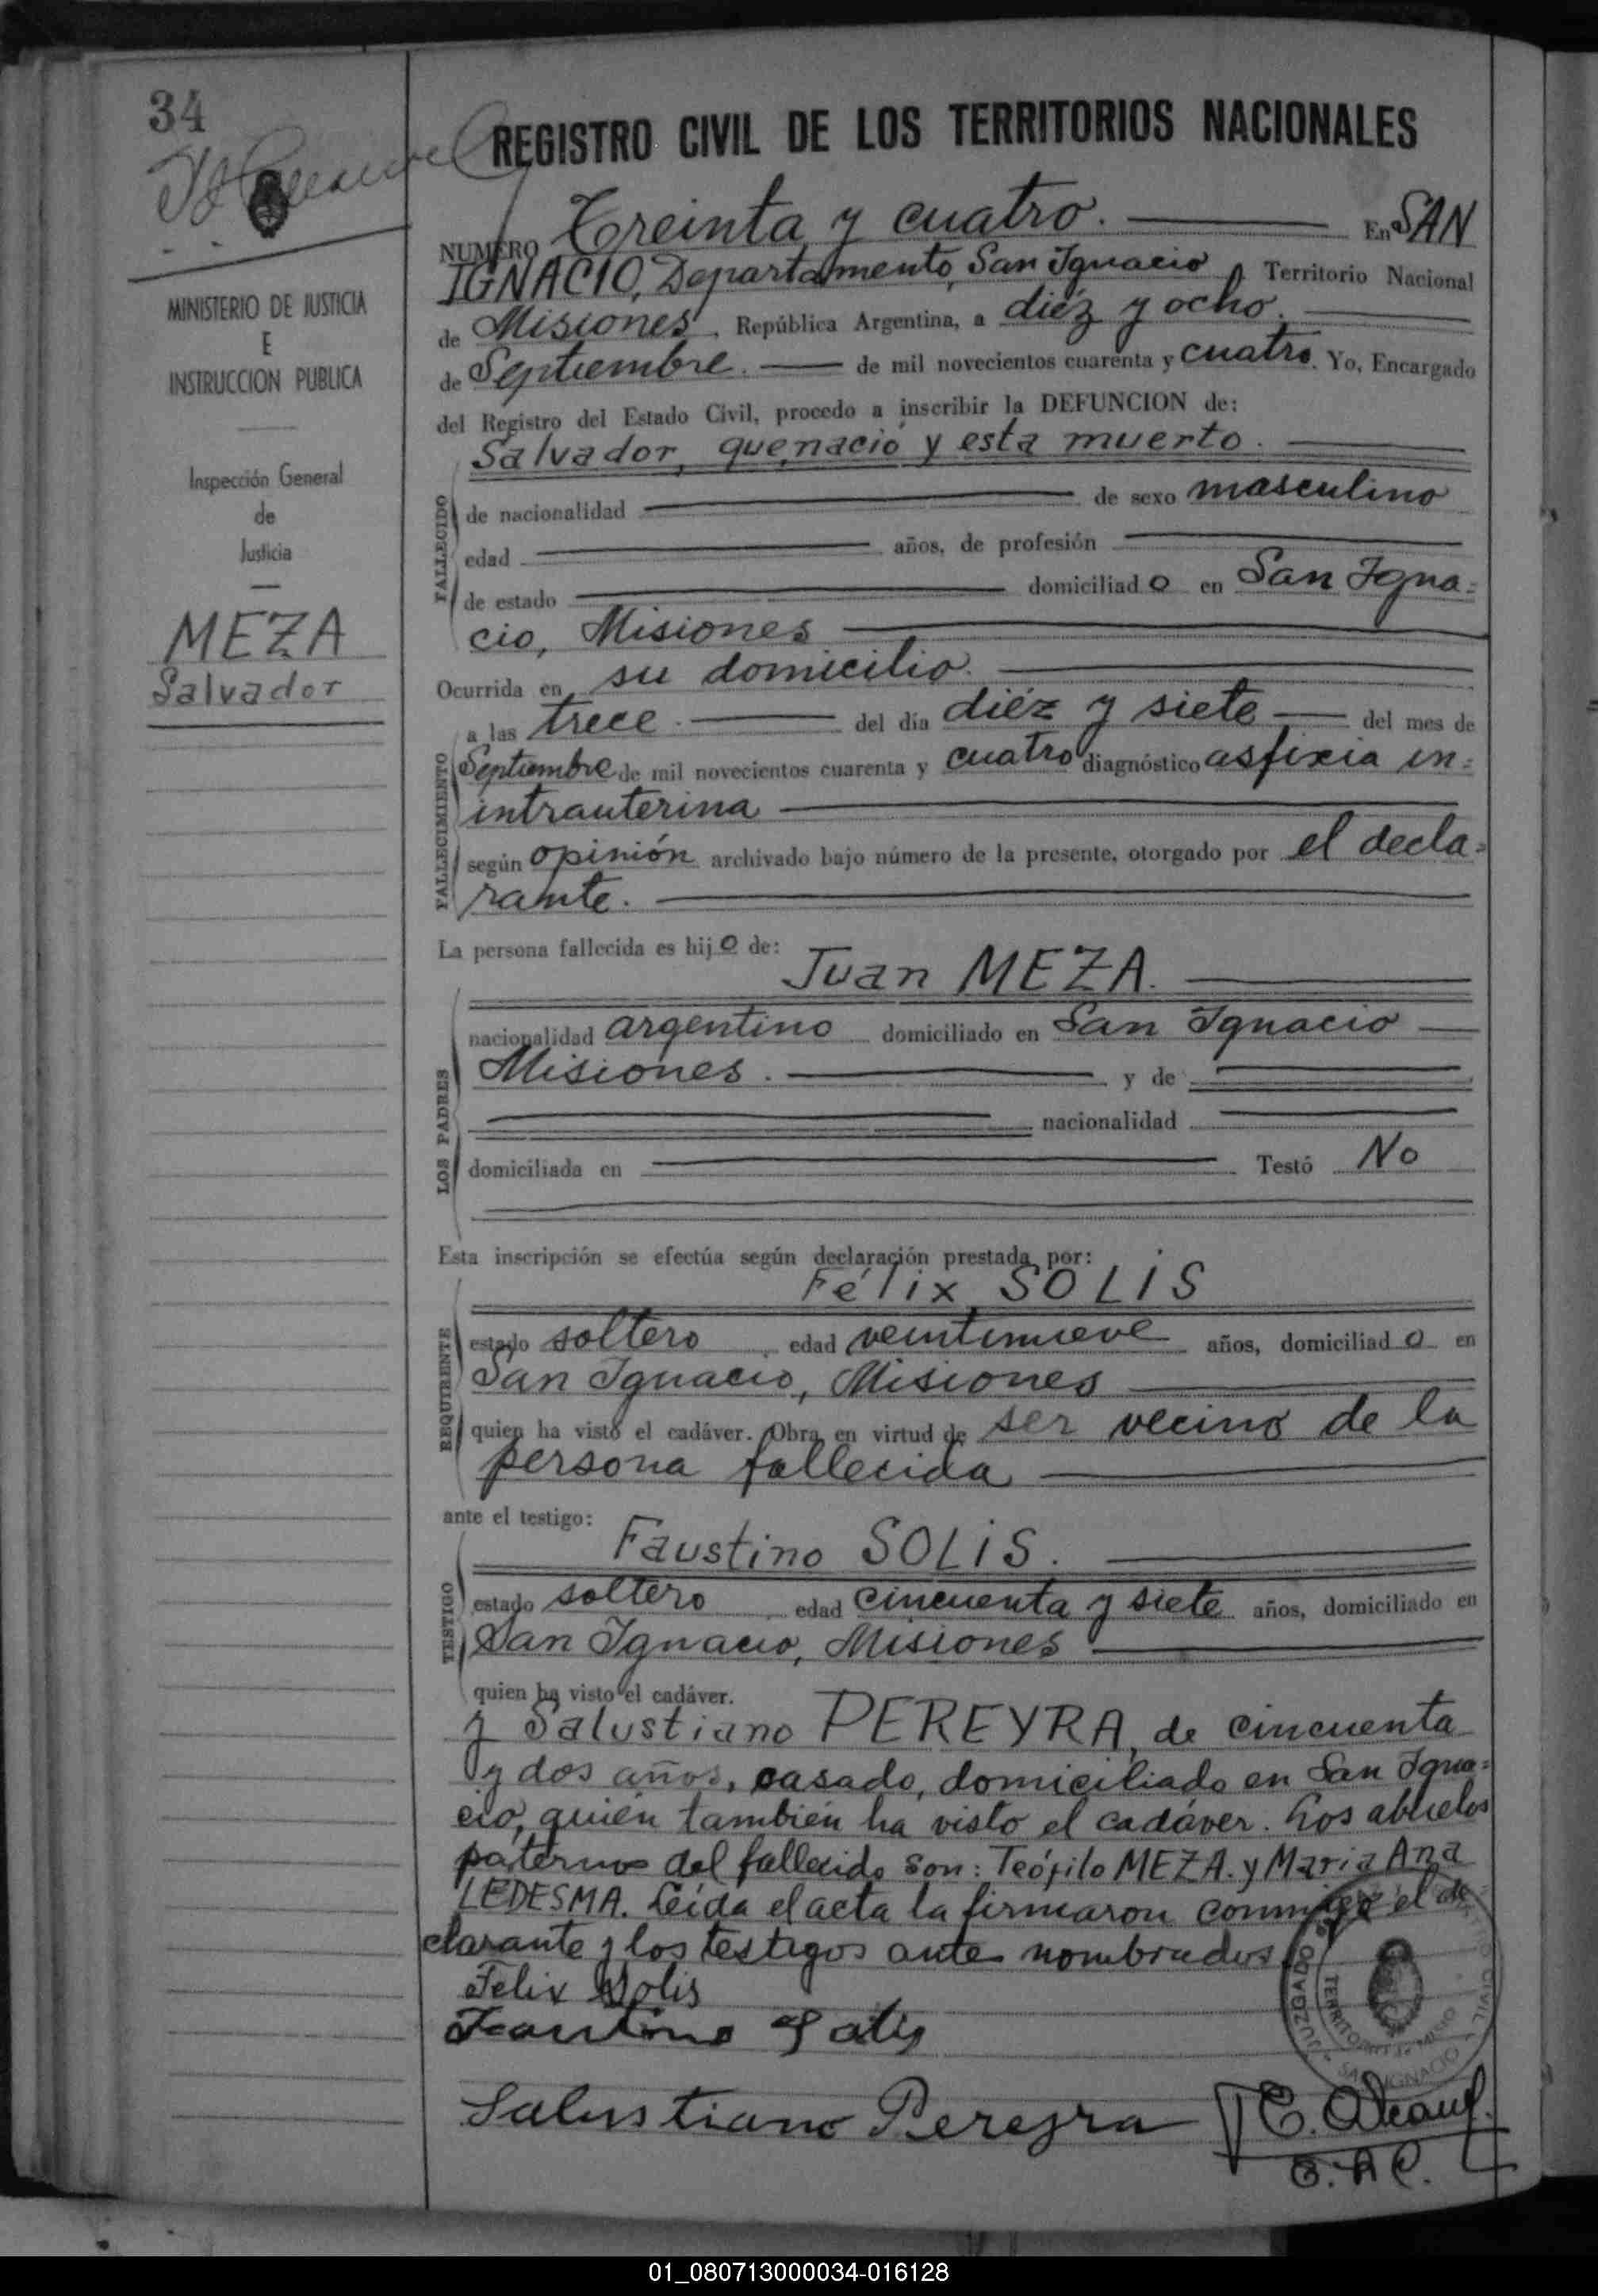 34
REGISTRO CIVIL DE LOS TERRITORIOS NACIONALES
NUMERO Treinta y cuatro. En SAN
IGNACIO, Departamento San Ignacio, Territorio Nacional
de Misiones, República Argentina, a diéz y ocho.
de Septiembre. de mil novecientos cuarenta y cuatro. Yo, Encargado
del Registro del Estado Civil, procedo a inscribir la DEFUNCION de:
Salvador, que nació y esta muerto.
FALLECIDO
de nacionalidad de sexo masculino
edad años, de profesión
de estado domiciliado en San Igna=
cio, Misiones
Ocurrida en su domicilio.
FALLECIMIENTO
a las trece. del día diéz y siete del mes de
Septiembre de mil novecientos cuarenta y cuatro diagnóstico asfixia in=
intrauterina
según opinión archivado bajo número de la presente, otorgado por el decla=
rante.
La persona fallecida es hijo de:
Juan MEZA.
LOS PADRES
nacionalidad argentino domiciliado en San Ignacio
Misiones. y de
nacionalidad
domiciliada en Testó No
Esta inscripción se efectúa según declaración prestada por:
Félix SOLIS
REQUIRENTE
estado soltero edad veintinueve años, domiciliado en
San Ignacio, Misiones
quien ha visto el cadáver. Obra en virtud de ser vecino de la
persona fallecida
ante el testigo:
Faustino SOLIS.
TESTIGO
estado soltero edad cincuenta y siete años, domiciliado en
San Ignacio, Misiones
quien ha visto el cadáver.
y Salustiano PEREYRA, de cincuenta
y dos años, casado, domiciliado en San Igna=
cio, quién también ha visto el cadáver. Los abuelos
paternos del fallecido son: Teófilo MEZA. y Maria Ana
LEDESMA. Leída el acta la firmaron conmigo el de
clarante y los testigos ante nombrados
Felix Solis
Faustino Solis
Salustiano Pereyra
JUZGADO
TERRITORIO
SAN IGNACIO
CIVIL
MINISTERIO DE JUSTICIA
E
INSTRUCCION PUBLICA
Inspección General
de
Justicia
MEZA
Salvador
01_080713000034-016128